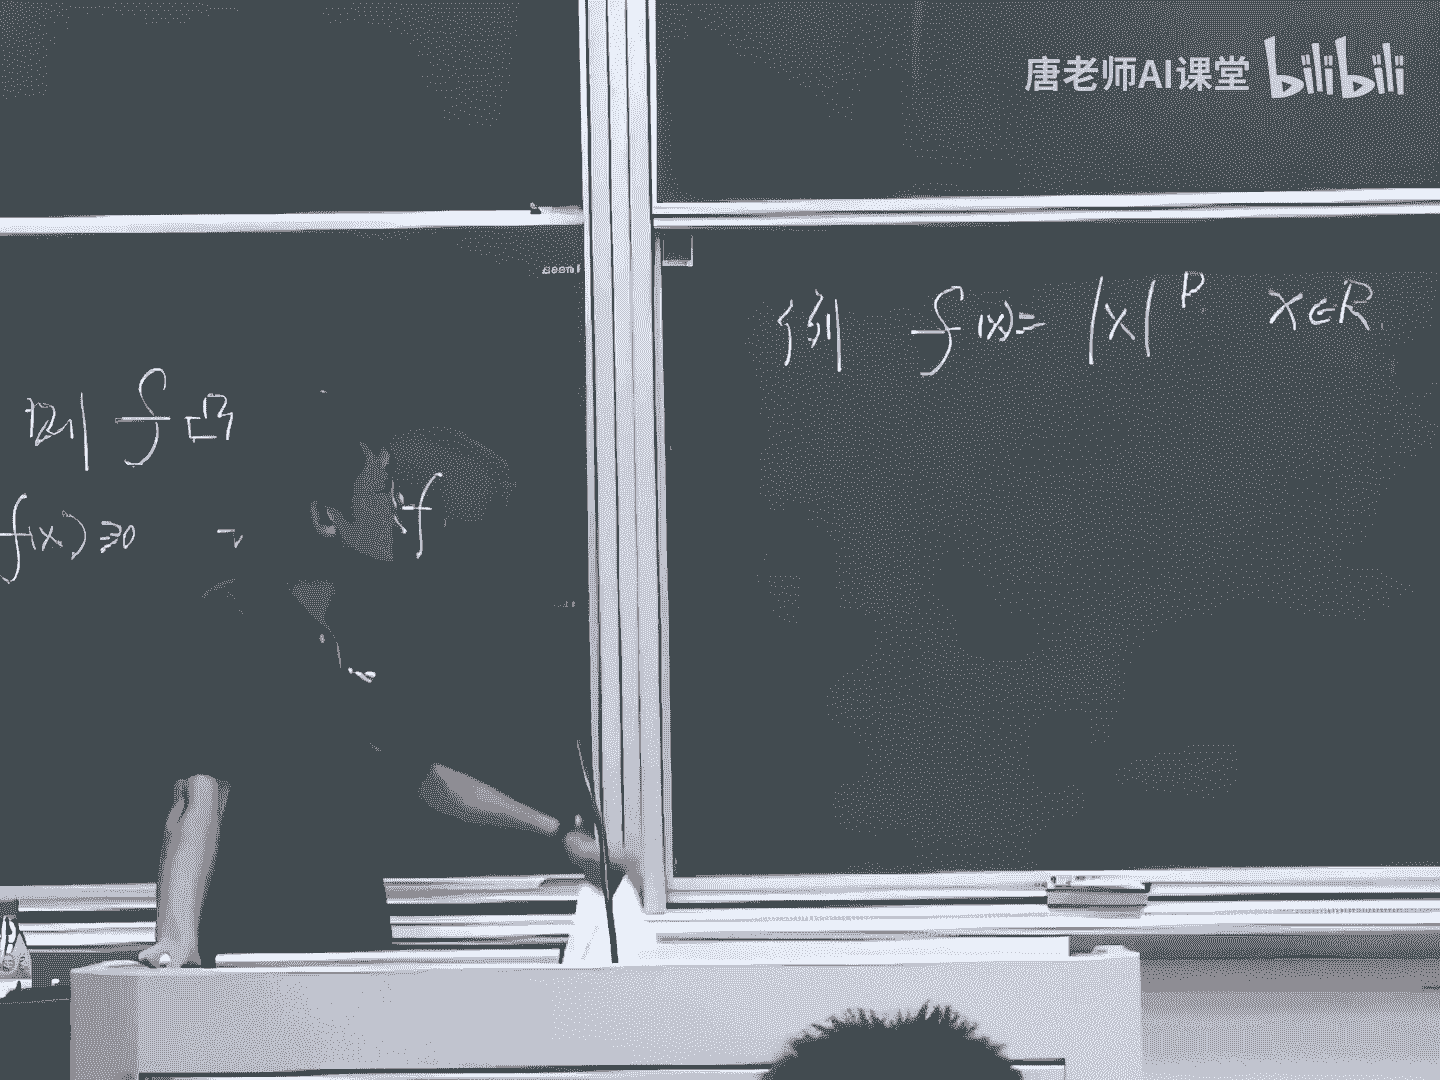 唐老师AI课堂 bilibili
则 f 凸
f(x) ≥0
f
例 f(x)= |x|^P x∈R